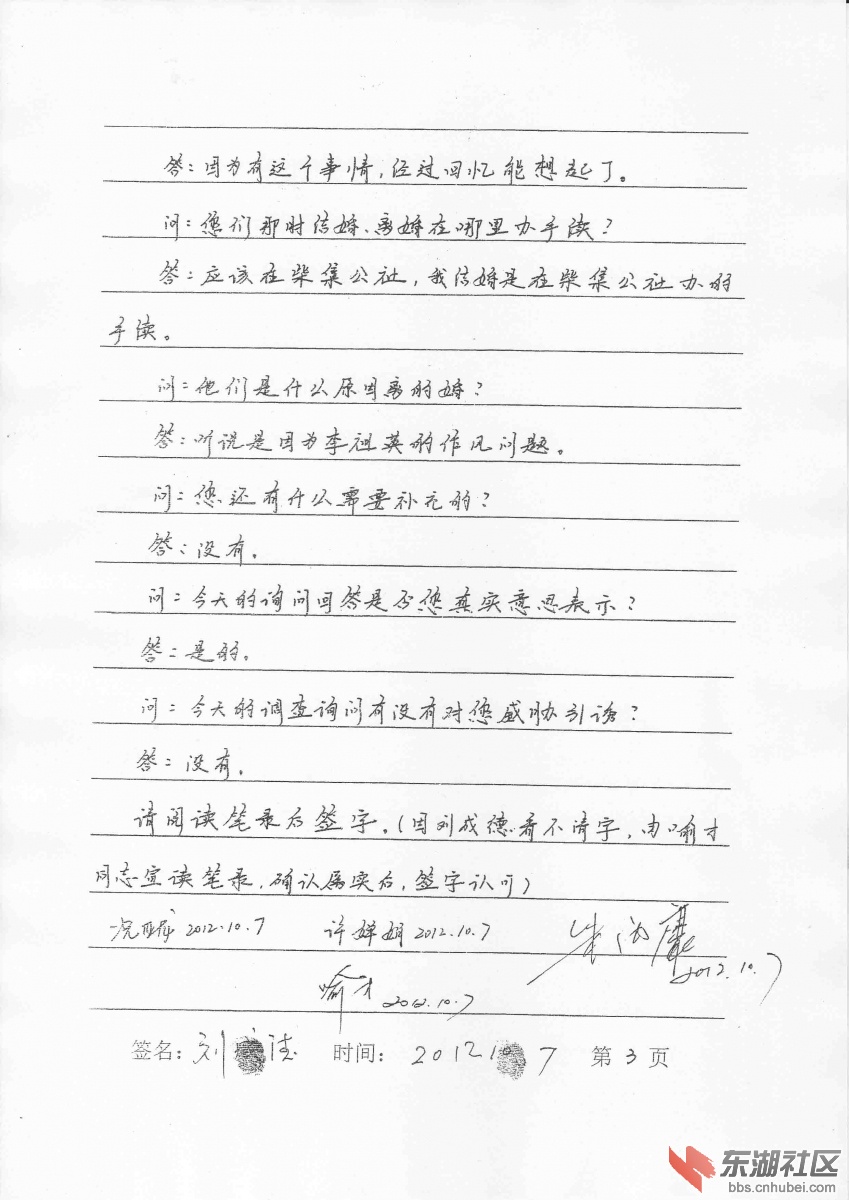 答:因为有这个事情,经过回忆能想起了。
问:您们那时结婚、离婚在哪里办手续?
答:应该在柴集公社,我结婚是在柴集公社办的
手续。
问:他们是什么原因离的婚?
答:听说是因为李祖英的作风问题。
问:您还有什么需要补充的?
答:没有。
问:今天的询问回答是否您真实意思表示?
答:是的。
问:今天的调查询问有没有对您威胁引诱?
答:没有。
请阅读笔录后签字。(因刘成德看不清字,由喻才
同志宣读笔录,确认属实后,签字认可)
2012.10.7 许婵娟 2012.10.7 朱 2012.10.7
喻才 2012.10.7
签名:刘成德 时间:2012 10 7 第3页
东湖社区
bbs.cnhubei.com